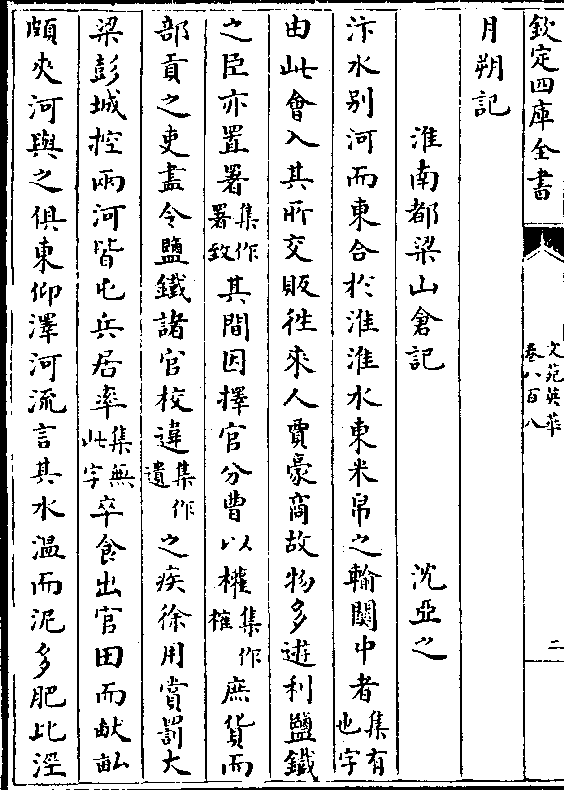 欽定四庫全書
文苑英華
卷八百八
二
月朔記
淮南都梁山倉記 沈亞之
汴水别河而東合於淮淮水東米帛之輸關中者集有也字
由此會入其所交販徃來人賈豪商故物多遊利鹽鐵
之臣亦置署集作署致其間因擇官分曹以權集作榷庶貨而
部貢之吏盡令鹽鐵諸官校違集作遺之疾徐用賞罰大
梁彭城控兩河皆屯兵居率集無此字卒食出官田而畝畆
頗夾河與之俱東仰澤河流言其水温而泥多肥比涇